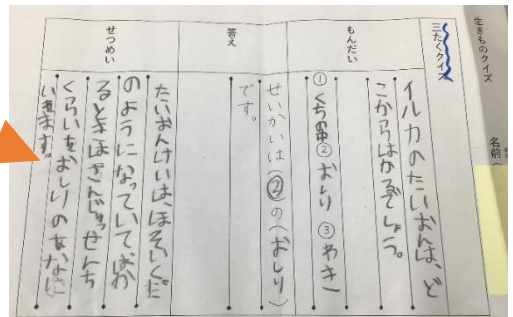 生きものクイズ
名前(
三たくクイズ
もんだい
イルカのたいおんは、ど
こからはかるでしょう。
①くちの中②おしり③わき
答え
せいかいは(②)の(おしり)
です。
せつめい
たいおんけいは、ほそいくだ
のようになっていてはか
るときはさんじゅっせんち
くらいをおしりのあなに
いれます。